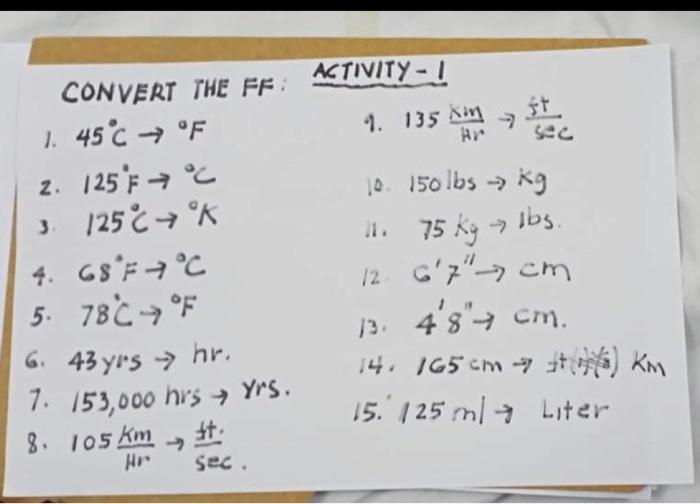 ACTIVITY - 1
CONVERT THE FF:
1. 45°C → °F
2. 125°F → °C
3. 125°C → °K
4. 68°F → °C
5. 78°C → °F
6. 43 yrs → hr.
7. 153,000 hrs → yrs.
8. 105 Km/Hr → ft./sec.
9. 135 Km/Hr → ft/sec
10. 150 lbs → Kg
11. 75 Kg → lbs.
12. 6'7" → cm
13. 4'8" → cm.
14. 165 cm → Km
15. 125 ml → Liter